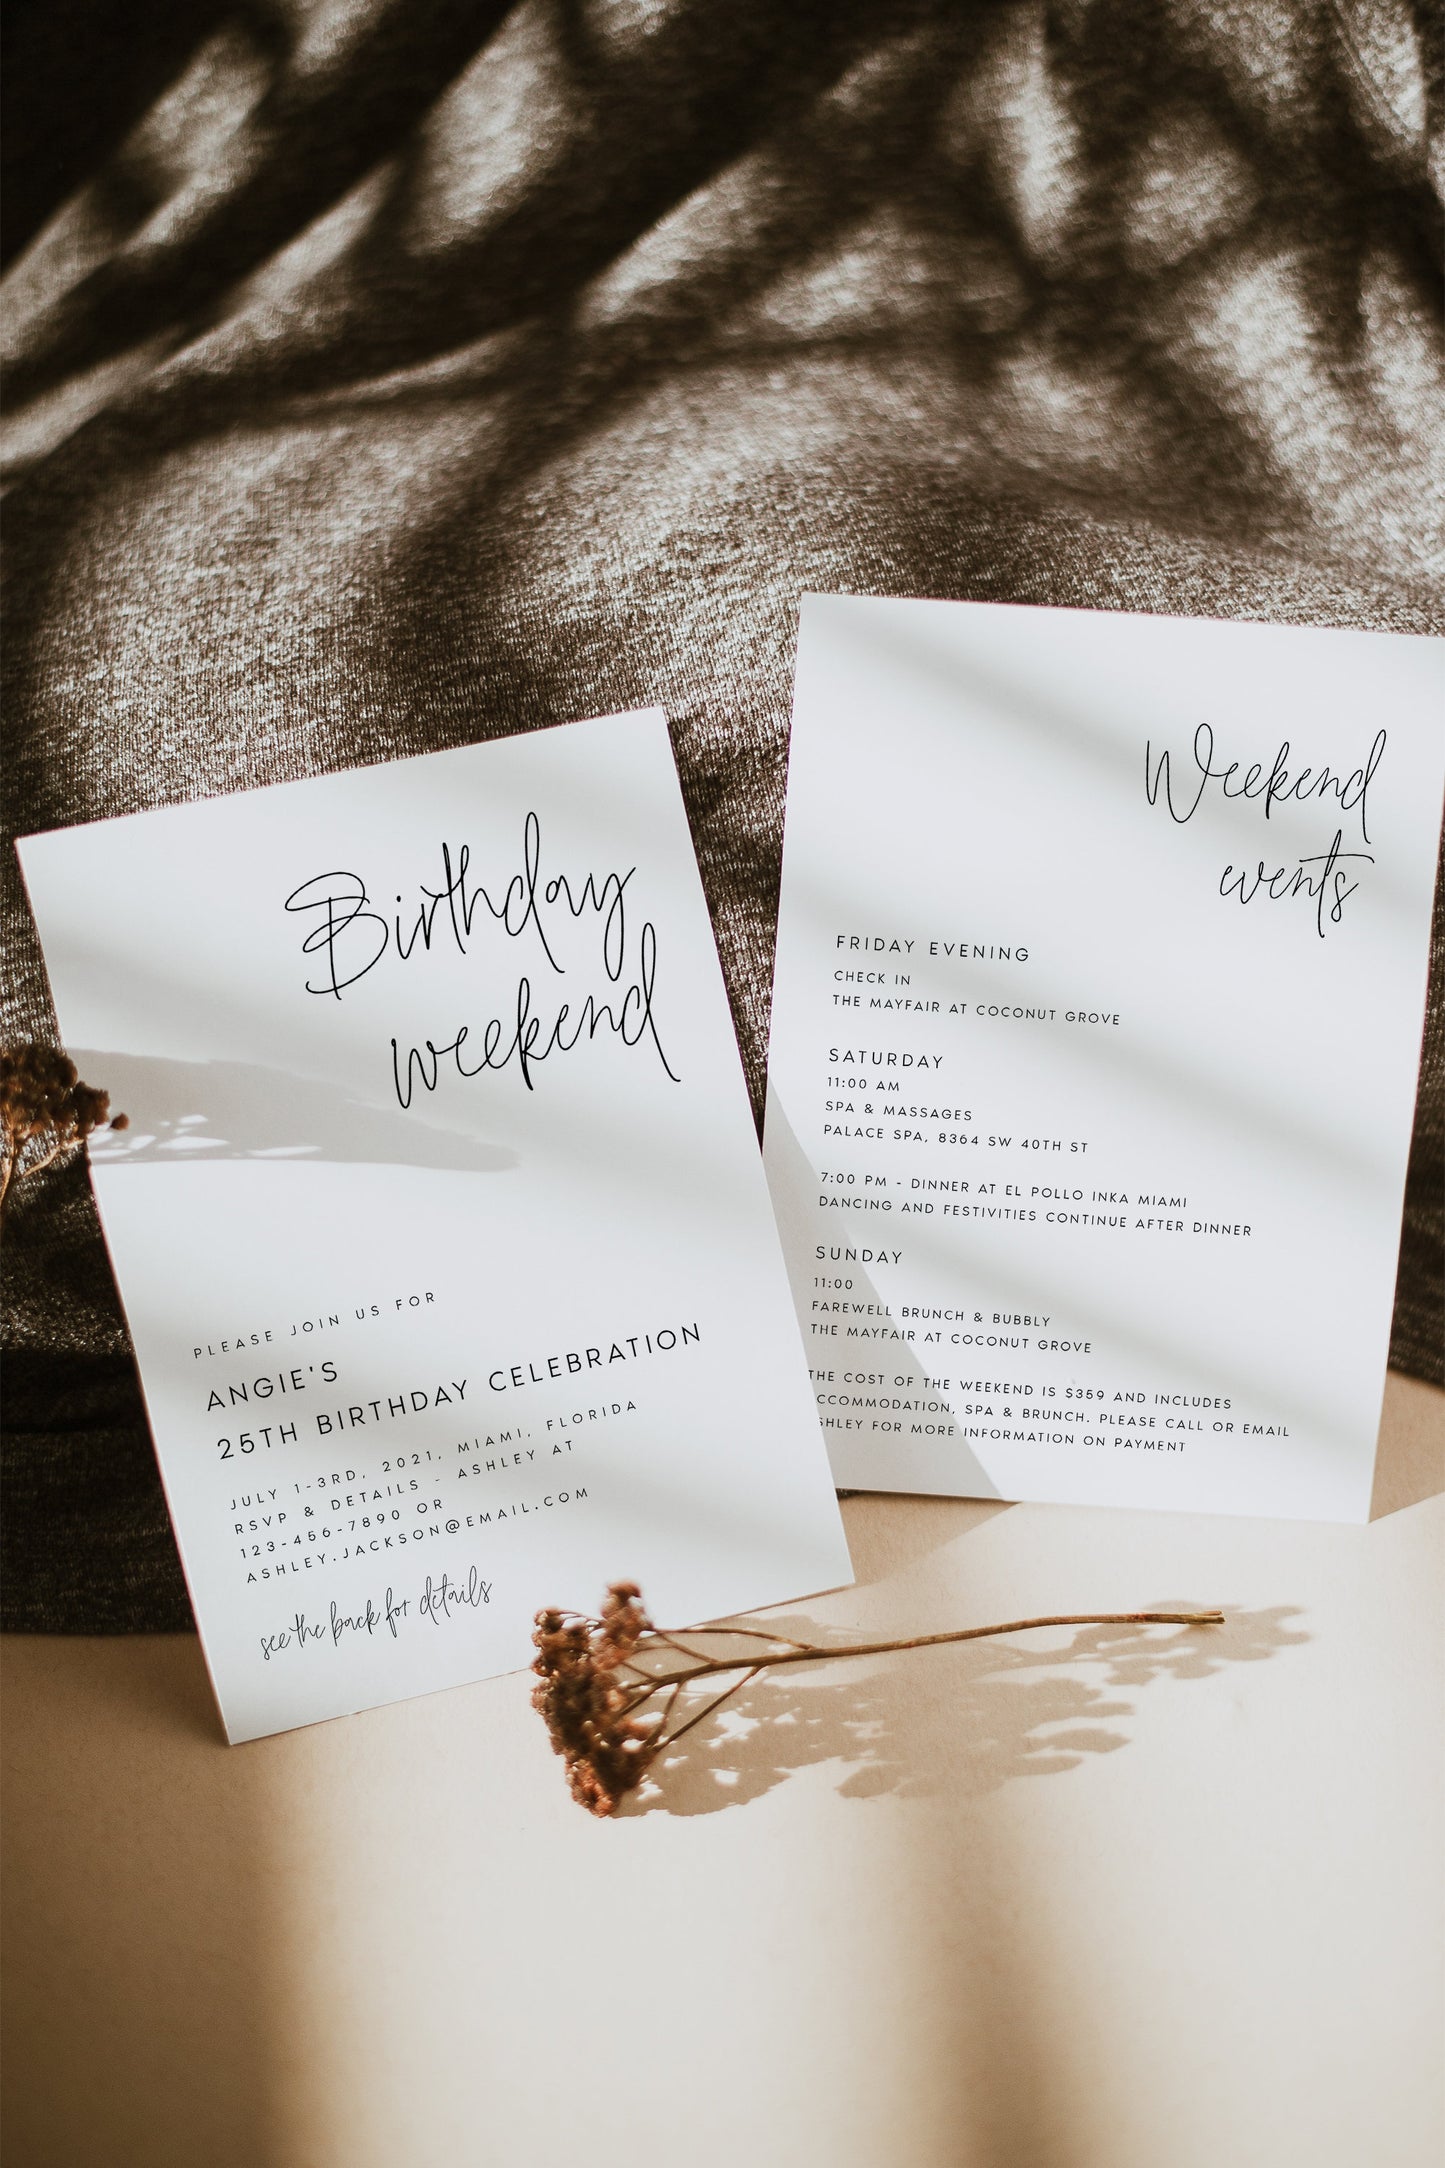 Birthday
weekend
PLEASE JOIN US FOR
ANGIE'S
25TH BIRTHDAY CELEBRATION
JULY 1-3RD, 2021, MIAMI, FLORIDA
RSVP & DETAILS - ASHLEY AT
123-456-7890 OR
ASHLEY.JACKSON@EMAIL.COM
see the back for details
Weekend
events
FRIDAY EVENING
CHECK IN
THE MAYFAIR AT COCONUT GROVE
SATURDAY
11:00 AM
SPA & MASSAGES
PALACE SPA, 8364 SW 40TH ST
7:00 PM - DINNER AT EL POLLO INKA MIAMI
DANCING AND FESTIVITIES CONTINUE AFTER DINNER
SUNDAY
11:00
FAREWELL BRUNCH & BUBBLY
THE MAYFAIR AT COCONUT GROVE
THE COST OF THE WEEKEND IS $359 AND INCLUDES
CCOMMODATION, SPA & BRUNCH. PLEASE CALL OR EMAIL
SHLEY FOR MORE INFORMATION ON PAYMENT